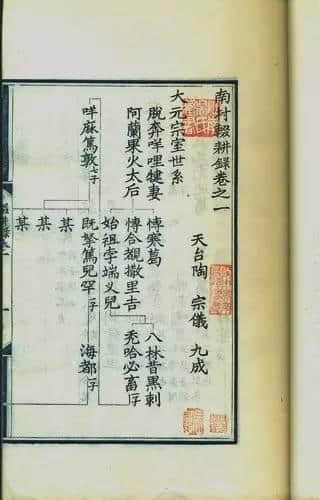 南村輟耕錄卷之一
天台陶 宗儀 九成
大元宗室世系
脫奔咩哩犍妻
阿蘭果火太后
博寒葛
博合覩撒里吉
始祖孛端义兒
八林昔黑剌
禿哈必畜一子
咩麻篤敦七子
既拏篤兒罕一子
海都一子
某
某
某